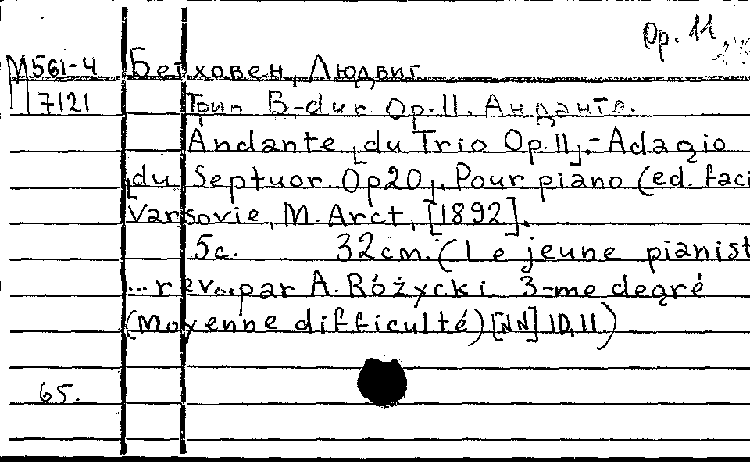 Op. 11
М561-4 Бетховен, Людвиг
7121 Трио B-dur Op.11. Анданте.
Andante [du Trio Op.11].-Adagio
[du Septuor Op20]. Pour piano (ed. faci
Varsovie, M. Arct, [1892].
5с. 32cm. (Le jeune pianist
...rev...par A. Różycki 3-me degré
(Moyenne difficulté) [NN] 10,11.)
65.